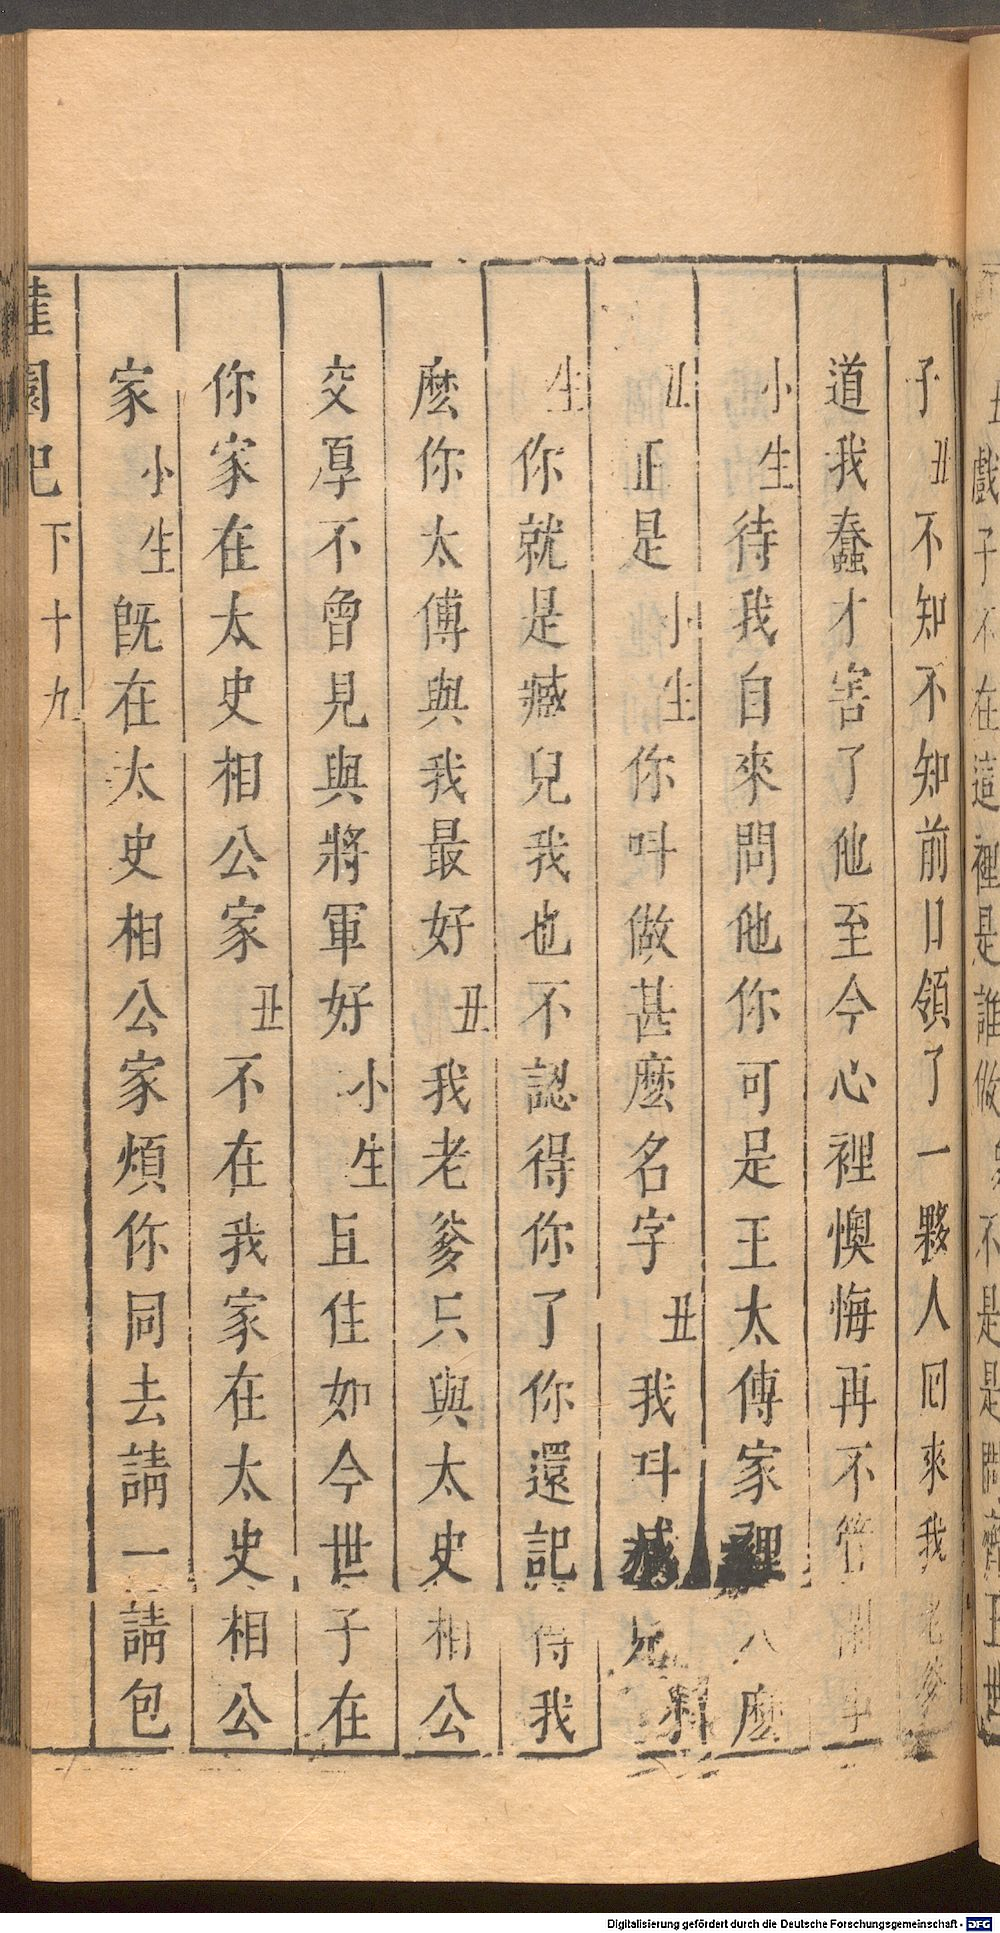 子丑不知不知前日領了一夥人囘來我老爹
道我蠢才害了他至今心裡懊悔再不管閒事
小生待我自來問他你可是王太傅家裡人麼
丑正是小生你呌做甚麼名字丑我呌
生你就是癡兒我也不認得你了你還記得我
麽你太傅與我最好丑我老爹只與太史相公
交厚不曾見與將軍好小生且住如今世子在
你家在太史相公家丑不在我家在太史相公
家小生旣在太史相公家煩你同去請一請包
園記 下 十九
Digitalisierung gefördert durch die Deutsche Forschungsgemeinschaft - DFG